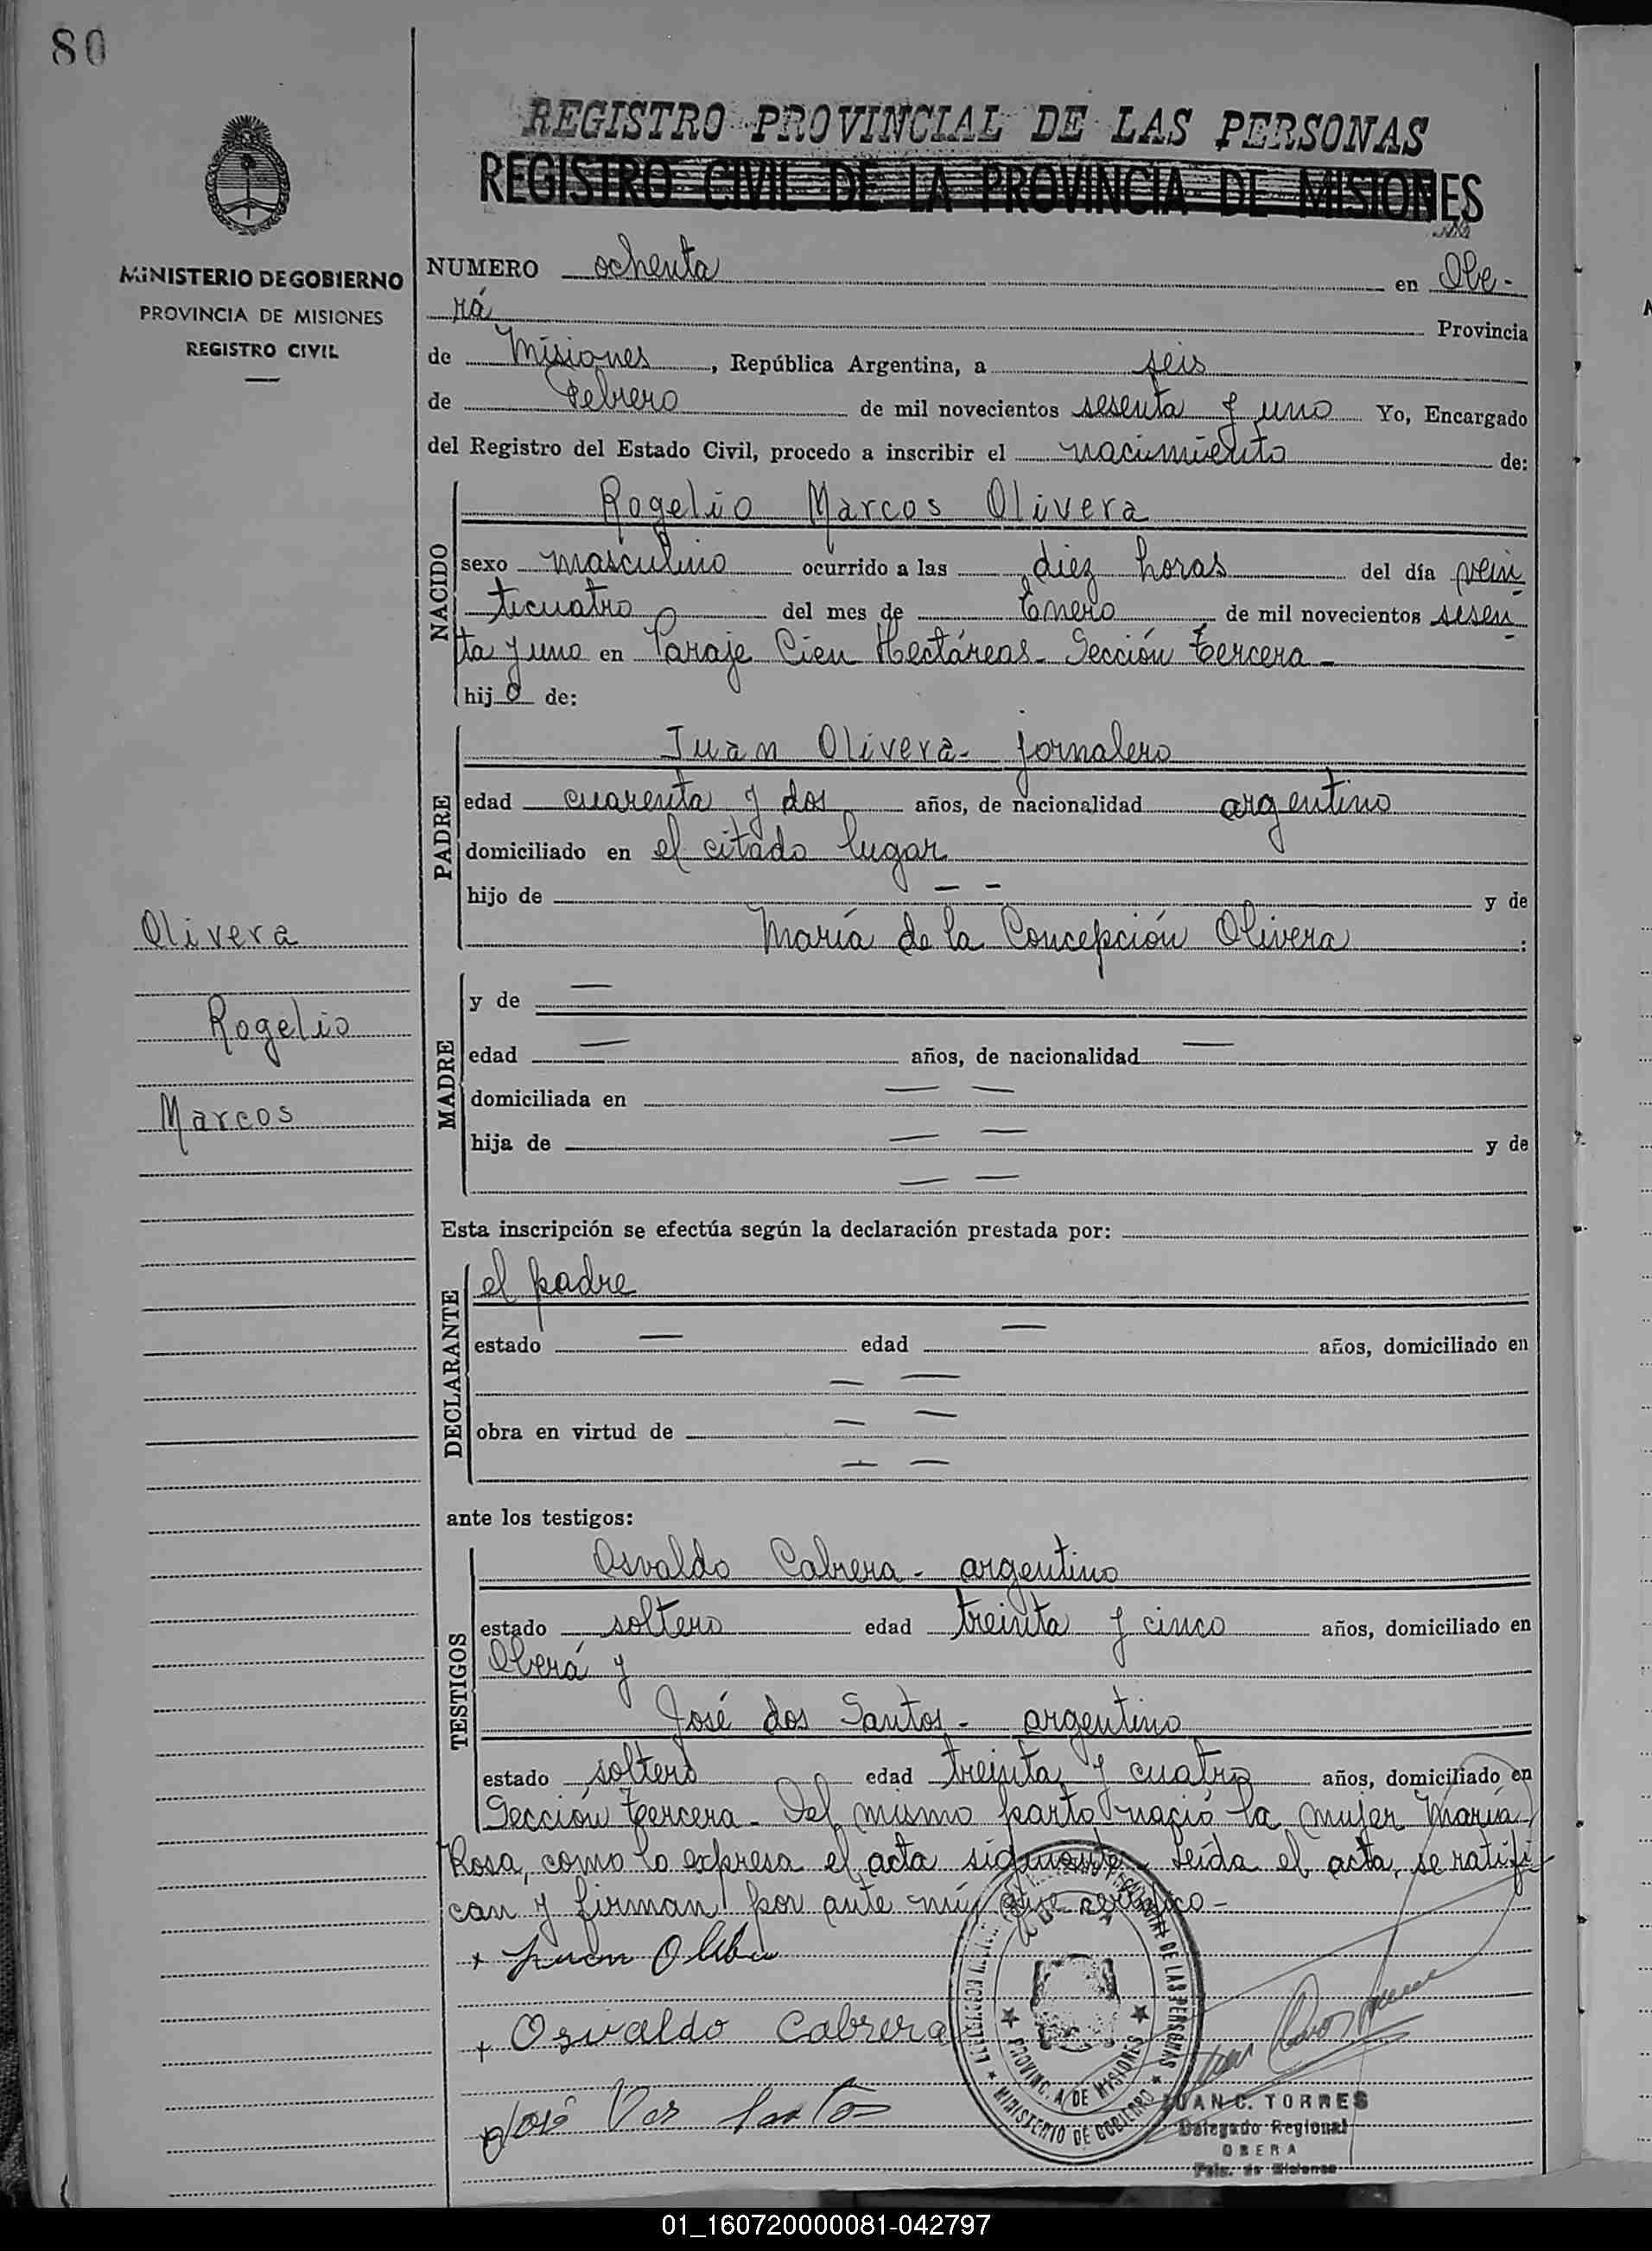 80
REGISTRO PROVINCIAL DE LAS PERSONAS
REGISTRO CIVIL DE LA PROVINCIA DE MISIONES
MINISTERIO DE GOBIERNO
PROVINCIA DE MISIONES
REGISTRO CIVIL
NUMERO ochenta en Obe-
rá Provincia
de Misiones, República Argentina, a seis
de Febrero de mil novecientos sesenta y uno Yo, Encargado
del Registro del Estado Civil, procedo a inscribir el nacimiento de:
NACIDO
Rogelio Marcos Olivera
sexo masculino ocurrido a las diez horas del día vein
ticuatro del mes de Enero de mil novecientos sesen
ta y uno en Paraje Cien Hectáreas - Sección tercera -
hijo de:
PADRE
Juan Olivera - jornalero
edad cuarenta y dos años, de nacionalidad argentino
domiciliado en el citado lugar
hijo de — — y de
María de la Concepción Olivera :
Olivera
Rogelio
Marcos
MADRE
y de —
edad — años, de nacionalidad —
domiciliada en — —
hija de — — y de
— —
Esta inscripción se efectúa según la declaración prestada por:
DECLARANTE
el padre
estado — edad — años, domiciliado en
— —
obra en virtud de — —
— —
ante los testigos:
TESTIGOS
Osvaldo Cabrera - argentino
estado soltero edad treinta y cinco años, domiciliado en
Oberá y
José dos Santos - argentino
estado soltero edad treinta y cuatro años, domiciliado en
Sección tercera - Del mismo parto nació la mujer María
Rosa, como lo expresa el acta siguiente - Leída el acta, se ratifi
can y firman por ante mí que certifico -
+ Juan Olibera
+ Osvaldo Cabrera
José Dos Santos
OBERA
DE LAS PERSONAS
PROVINCIA DE MISIONES
MINISTERIO DE GOBIERNO
JUAN C. TORRES
Delegado Regional
OBERA
Pcia. de Misiones
01_160720000081-042797